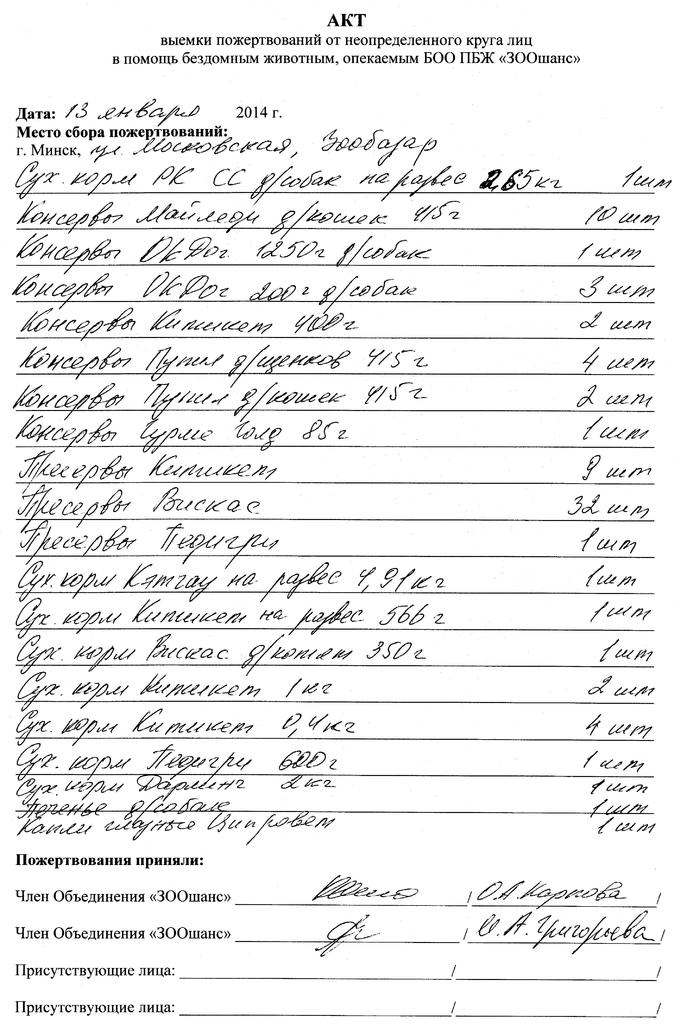 АКТ
выемки пожертвований от неопределенного круга лиц
в помощь бездомным животным, опекаемым БОО ПБЖ «ЗООшанс»
Дата: 13 января 2014 г.
Место сбора пожертвований:
г. Минск, ул. Московская, Зообазар
Сух. корм РК СС д/собак на развес 2,65кг 1шт
Консервы Майледи д/кошек 415г 10 шт
Консервы ОкДог 1250г д/собак 1 шт
Консервы ОкДог 200г д/собак 3 шт
Консервы Китикет 400г 2 шт
Консервы Пупил д/щенков 415г 4 шт
Консервы Пупил д/кошек 415г 2 шт
Консервы Гурме Голд 85г 1 шт
Пресервы Китикет 9 шт
Пресервы Вискас 32 шт
Пресервы Педигри 1 шт
Сух. корм Кэтчау на развес 4,91кг 1шт
Сух. корм Китикет на развес 566г 1шт
Сух. корм Вискас д/котят 350г 1шт
Сух. корм Китикет 1кг 2 шт
Сух. корм Китикет 0,4кг 4 шт
Сух. корм Педигри 600г 1 шт
Сух. корм Дарлинг 2кг 1шт
Печенье д/собак 1шт
Капли глазные Ципровет 1 шт
Пожертвования приняли:
Член Объединения «ЗООшанс» / О.А. Карпова /
Член Объединения «ЗООшанс» / О.А. Григорьева /
Присутствующие лица: / /
Присутствующие лица: / /